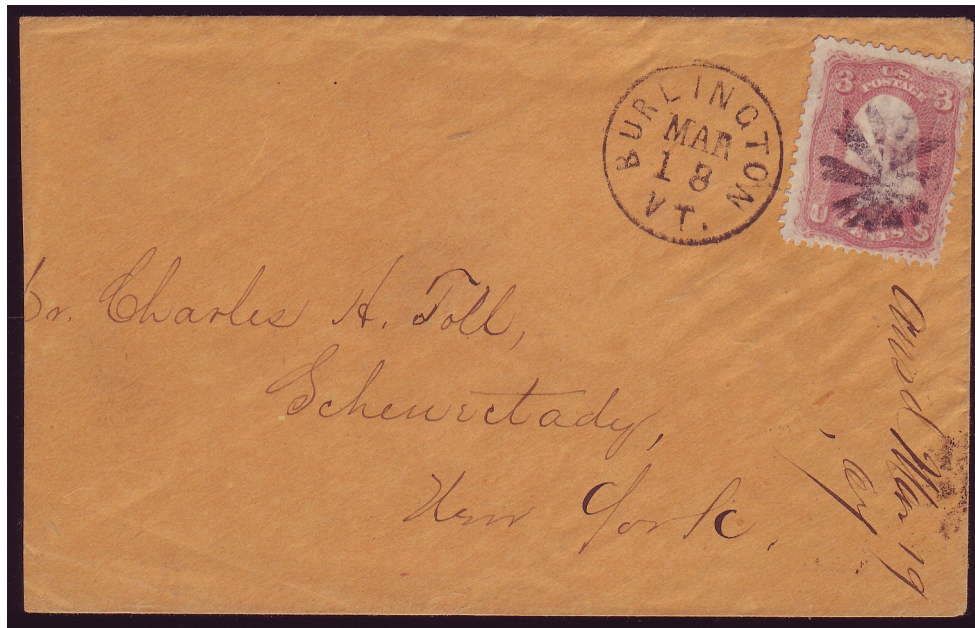 BURLINGTON
MAR
18
VT.
U.S.
POSTAGE
3 3
U S
Dr. Charles H. Toll,
Schenectady,
New York.
Mar 19